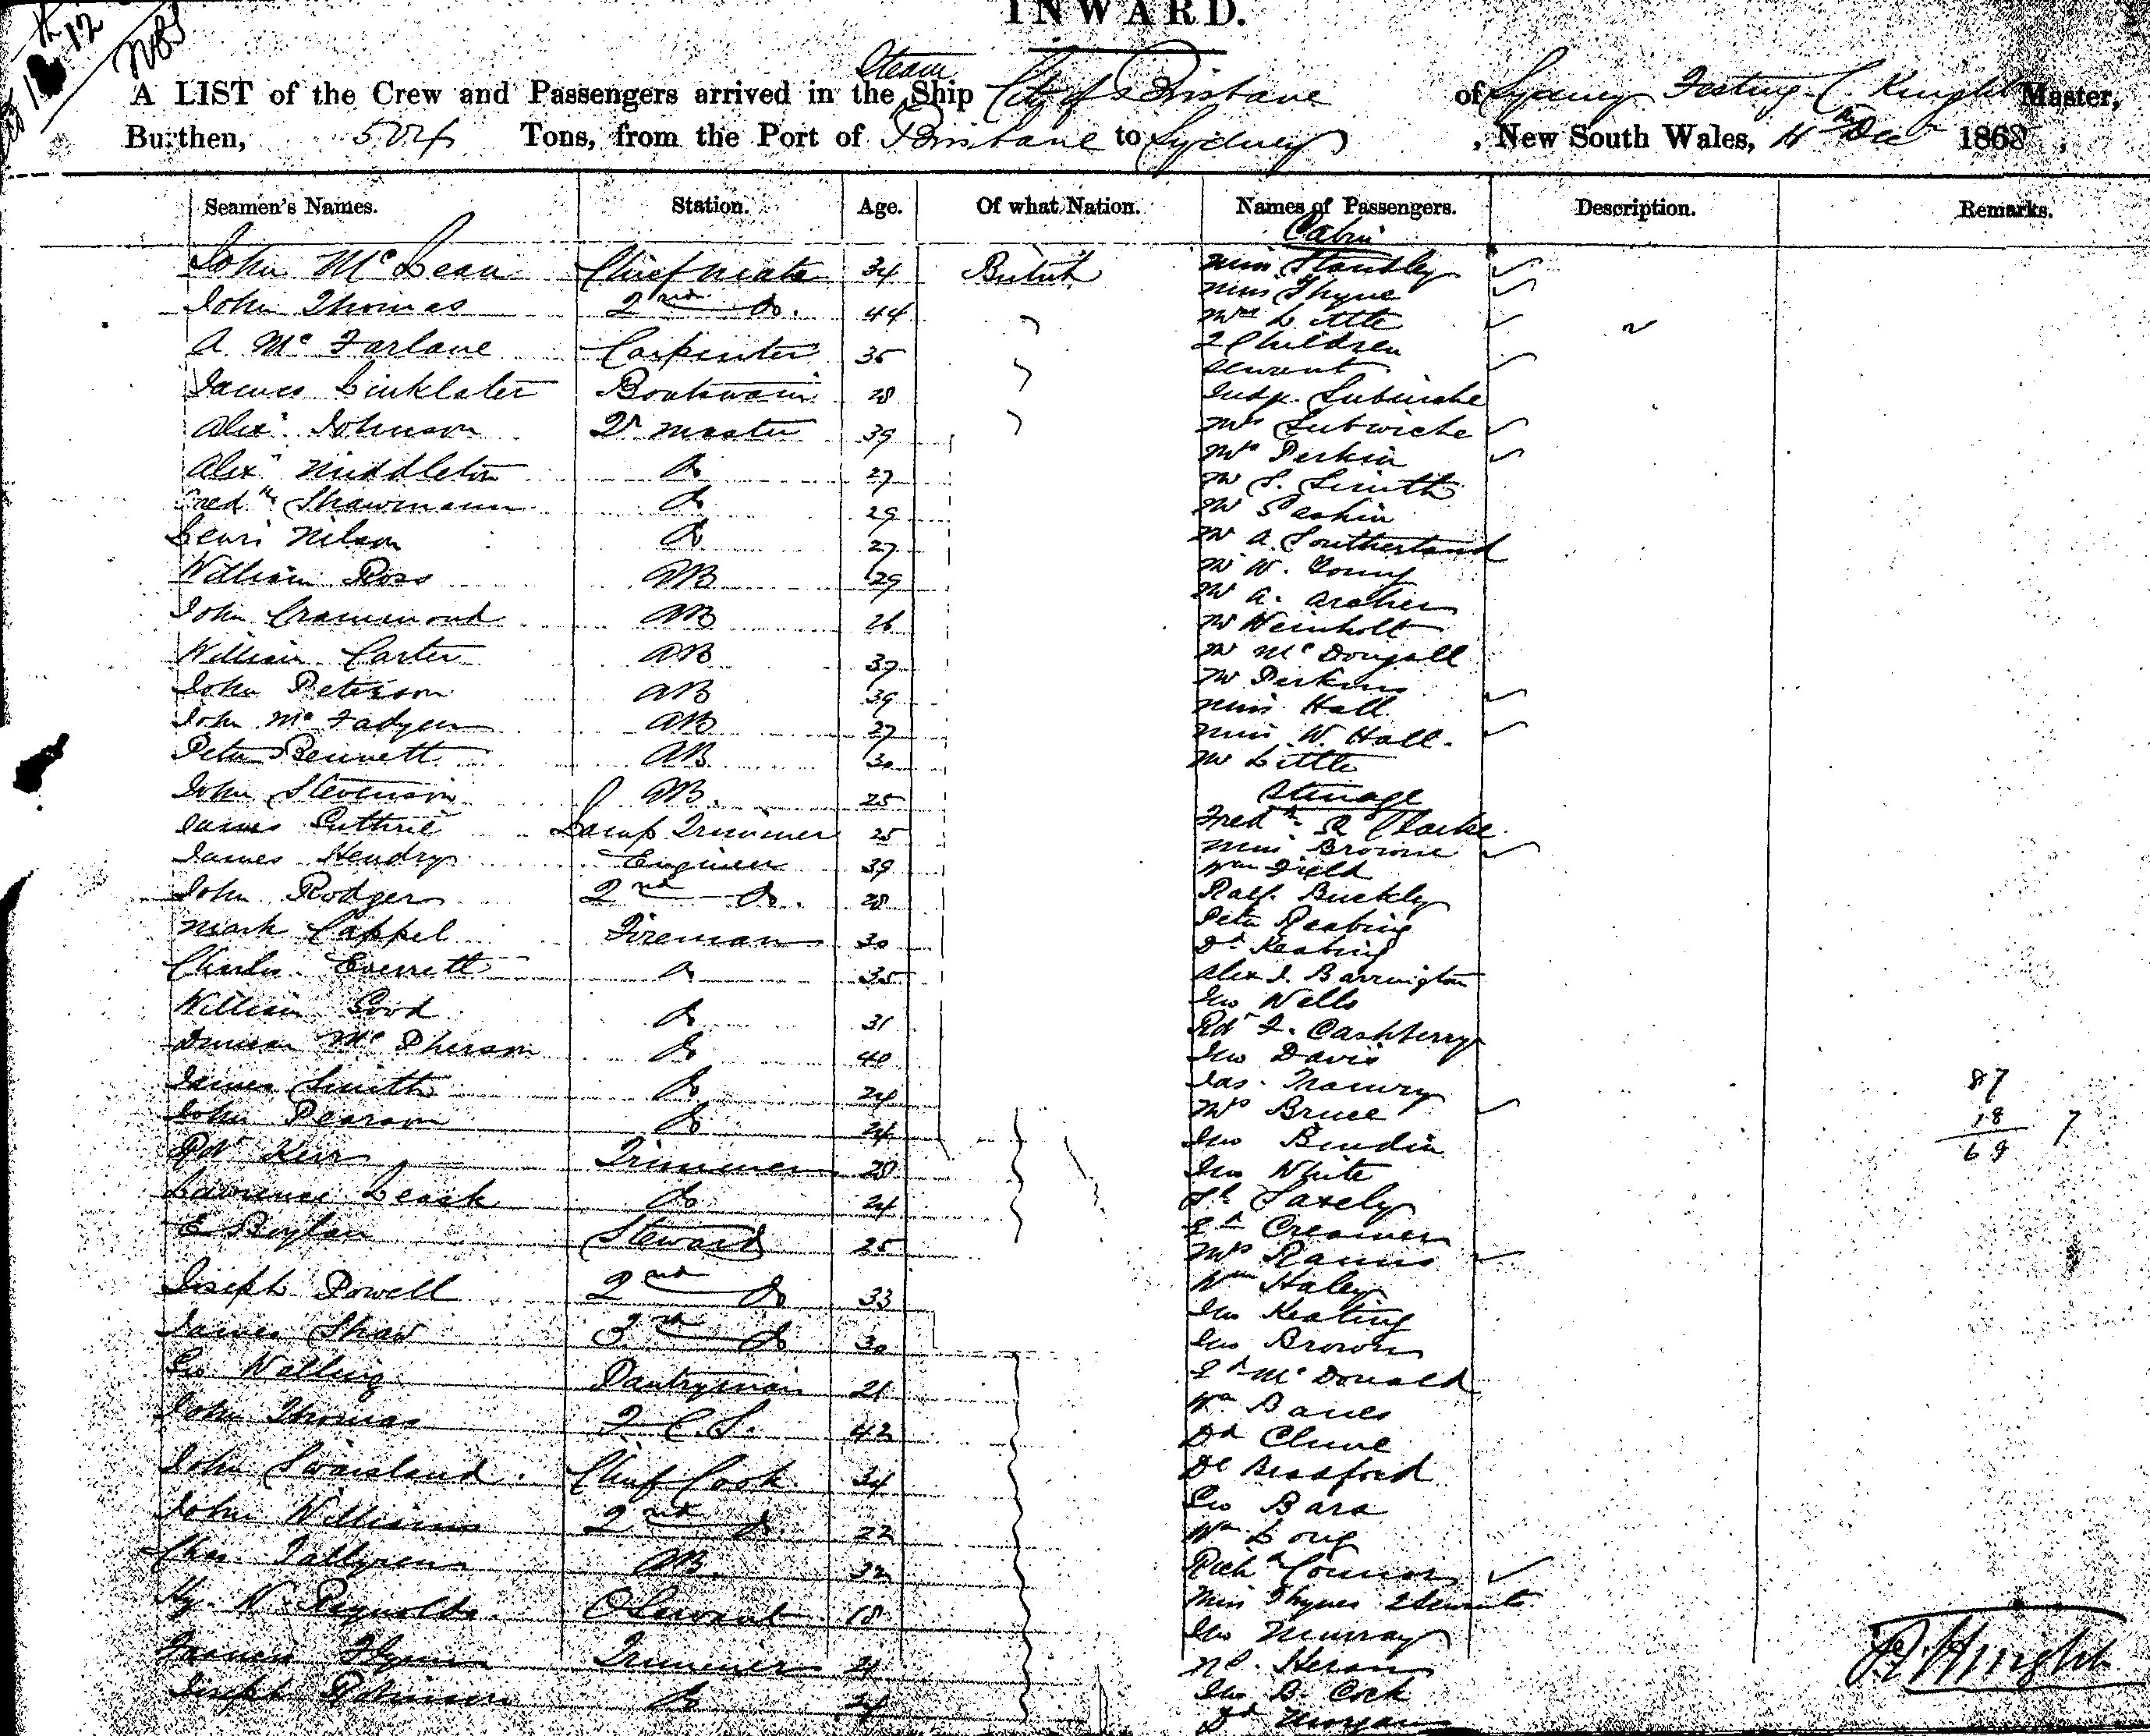 INWARD.
Steam
A LIST of the Crew and Passengers arrived in the Ship City of Brisbane of Sydney Knight Master,
Burthen, 504 Tons, from the Port of Brisbane to Sydney , New South Wales, 11th Decr 1868,
Seamen's Names. Station. Age. Of what Nation. Names of Passengers. Description. Remarks.
Cabin
John McLean Chief mate 34 British Miss
John Thomas 2nd Do. 44 Miss Thyne
Mrs Little
A McFarlane Carpenter 35 2 Children
Servant
James Linklater Boatswain 28 Judge Lutwiche
Alexr Johnson Qr master 39 Mrs Lutwiche
Alexr Middleton Do 27 Mrs Perkin
Mr S. Smith
Fredk Shawmann Do 29 Mr
Nilson Do 27 Mr A Southerland
William Ross AB 29 Mr W. Young
Mr A. Archer
John Crammond AB 26 Mr Weinholt
William Carter AB 39 Mr McDougall
Mr Perkins
John Peterson AB 39 Miss Hall
John McFadyen AB 27 Miss W. Hall.
Peter Bennett AB 30 Mr Little
John Stevenson AB. 25 Steerage
James Guthrie Lamp Trimmer 25 Fredk Clarke
James Hendry Engineer 39 Miss Browne
Wm Field
John Rodger 2nd Do. 28 Ralf. Buckly
Mark Cappel Fireman 30 Peter
Dd Keating
Charles Everrett Do 35 Alex J. Barrington
Jno Wells
William Good Do 31 Robt F. Cashberry
Duncan McPherson Do 40 Jno Davis
James Smith Do 24 Jas. 87
John Pearson Do 24 Mrs Bruce 18
Jno 69
Robt Keir Trimmer 28 Jno White
Lawrence Leask Do 24
E Boylan Steward 25 Ed Creamer
Mrs
Joseph Powell 2nd Do 33 Wm Haley
Jno Keating
James Shaw 3rd Do 30 Jno Brown
Geo Walling Pantryman 21 Ed McDonald
John Thomas F. C. S. 42 Wm
Dd Clune
John Swaisland Chief Cook 34 Dl Bradford
Geo
John Williams 2nd Do 22 Wm Long
Chas. AB. 32 Richd Connor
Hy. W. Reynolds. 18 Miss Thynes 2 Servants
Jno Murray
Francis Flynn Trimmer 21 Heran
Joseph Robinson Do 24 Jno B. Cock
Dd Morgan